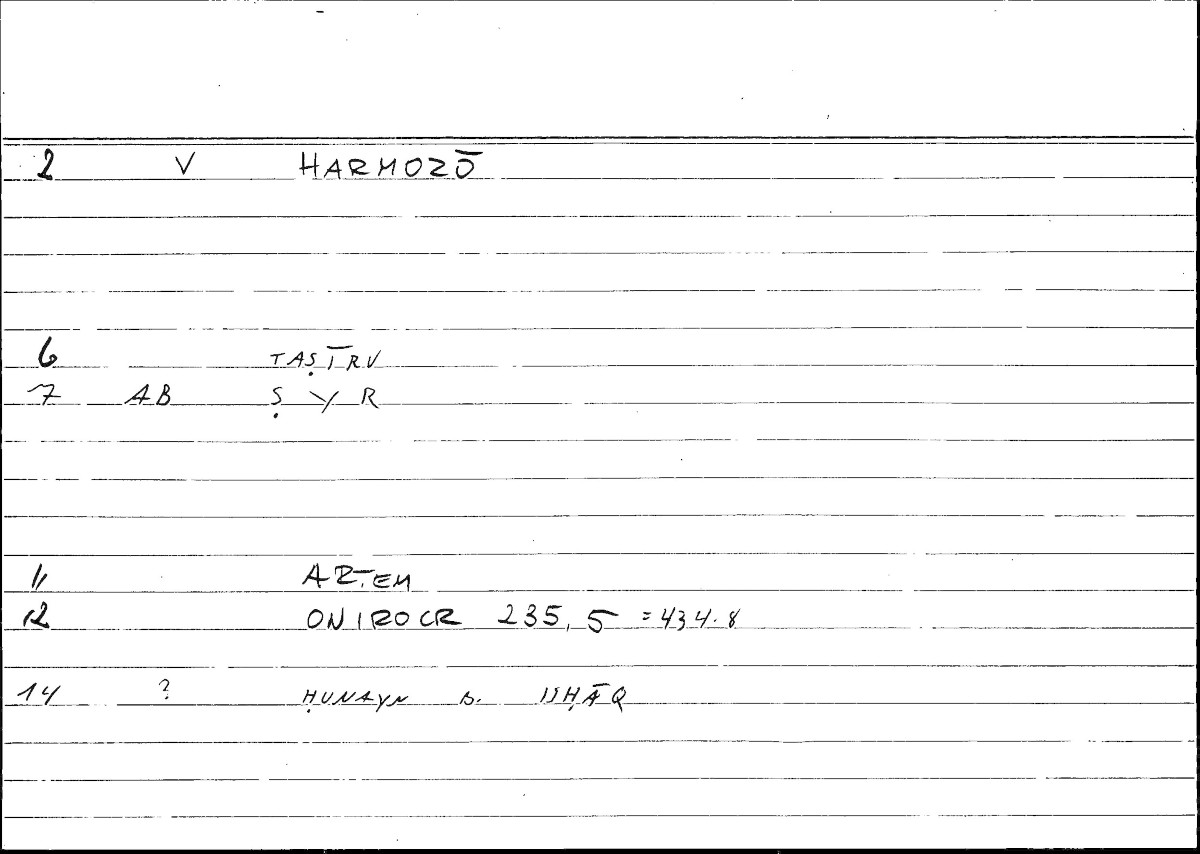 2 V HARMOZŌ
6 TAṢĪRU
7 AB Ṣ Y R
11 ARTEM
12 ONIROCR 235, 5 = 434.8
14 ? ḤUNAYN B. ISḤĀQ